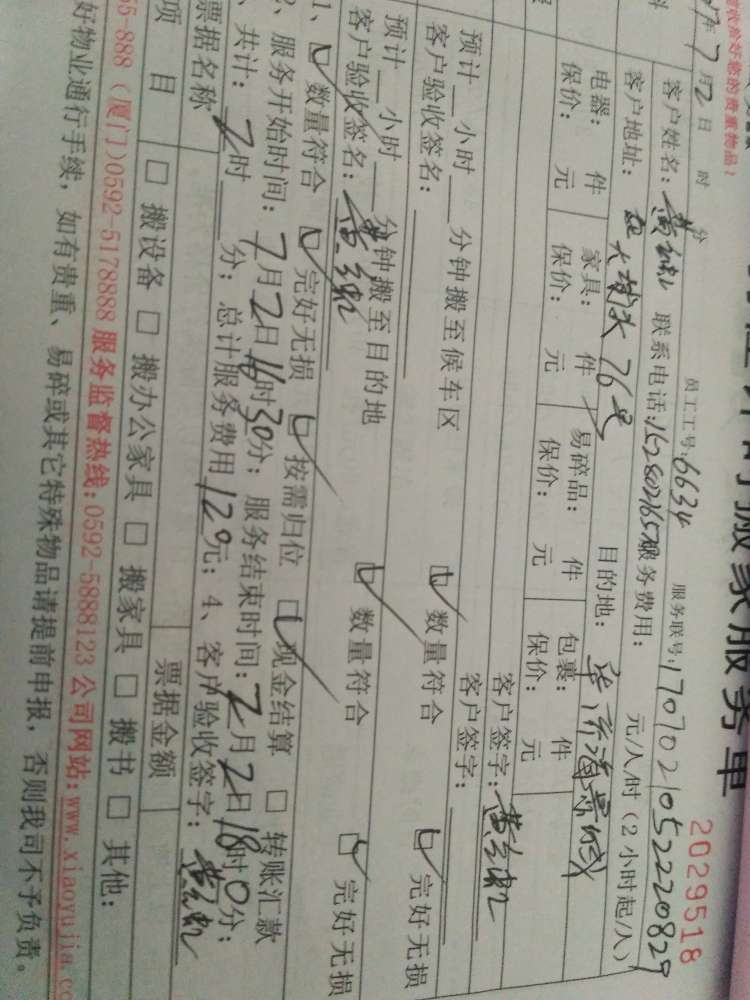 搬家服务单
2029518
收拾好您的贵重物品！
7月2日 时 分 员工工号：6634 服务联号：170702105222082
客户姓名： 联系电话： 服务费用： 元/人/时（2小时起/人）
客户地址： 76号 目的地： 海景城
电器： 件 家具： 件 易碎品： 件 包裹： 件
保价： 元 保价： 元 保价： 元 保价： 元
客户签字：
客户签字：
预计 小时 分钟搬至候车区 数量符合 完好无损
客户验收签名：
预计 小时 分钟搬至目的地 数量符合 完好无损
客户验收签名：
1、 数量符合 完好无损 按需归位 现金结算 转账汇款
、服务开始时间：7月2日16时30分；服务结束时间：7月2日18时0分；
、共计：2时 分；总计服务费用120元；4、客户验收签字：
票据名称 票据金额
项目 搬设备 搬办公家具 搬家具 搬书 其他：
55-888（厦门）0592-5178888 服务监督热线：0592-5888123 公司网站：www.xiaoyujia.co
好物业通行手续，如有贵重、易碎或其它特殊物品请提前申报，否则我司不予负责。